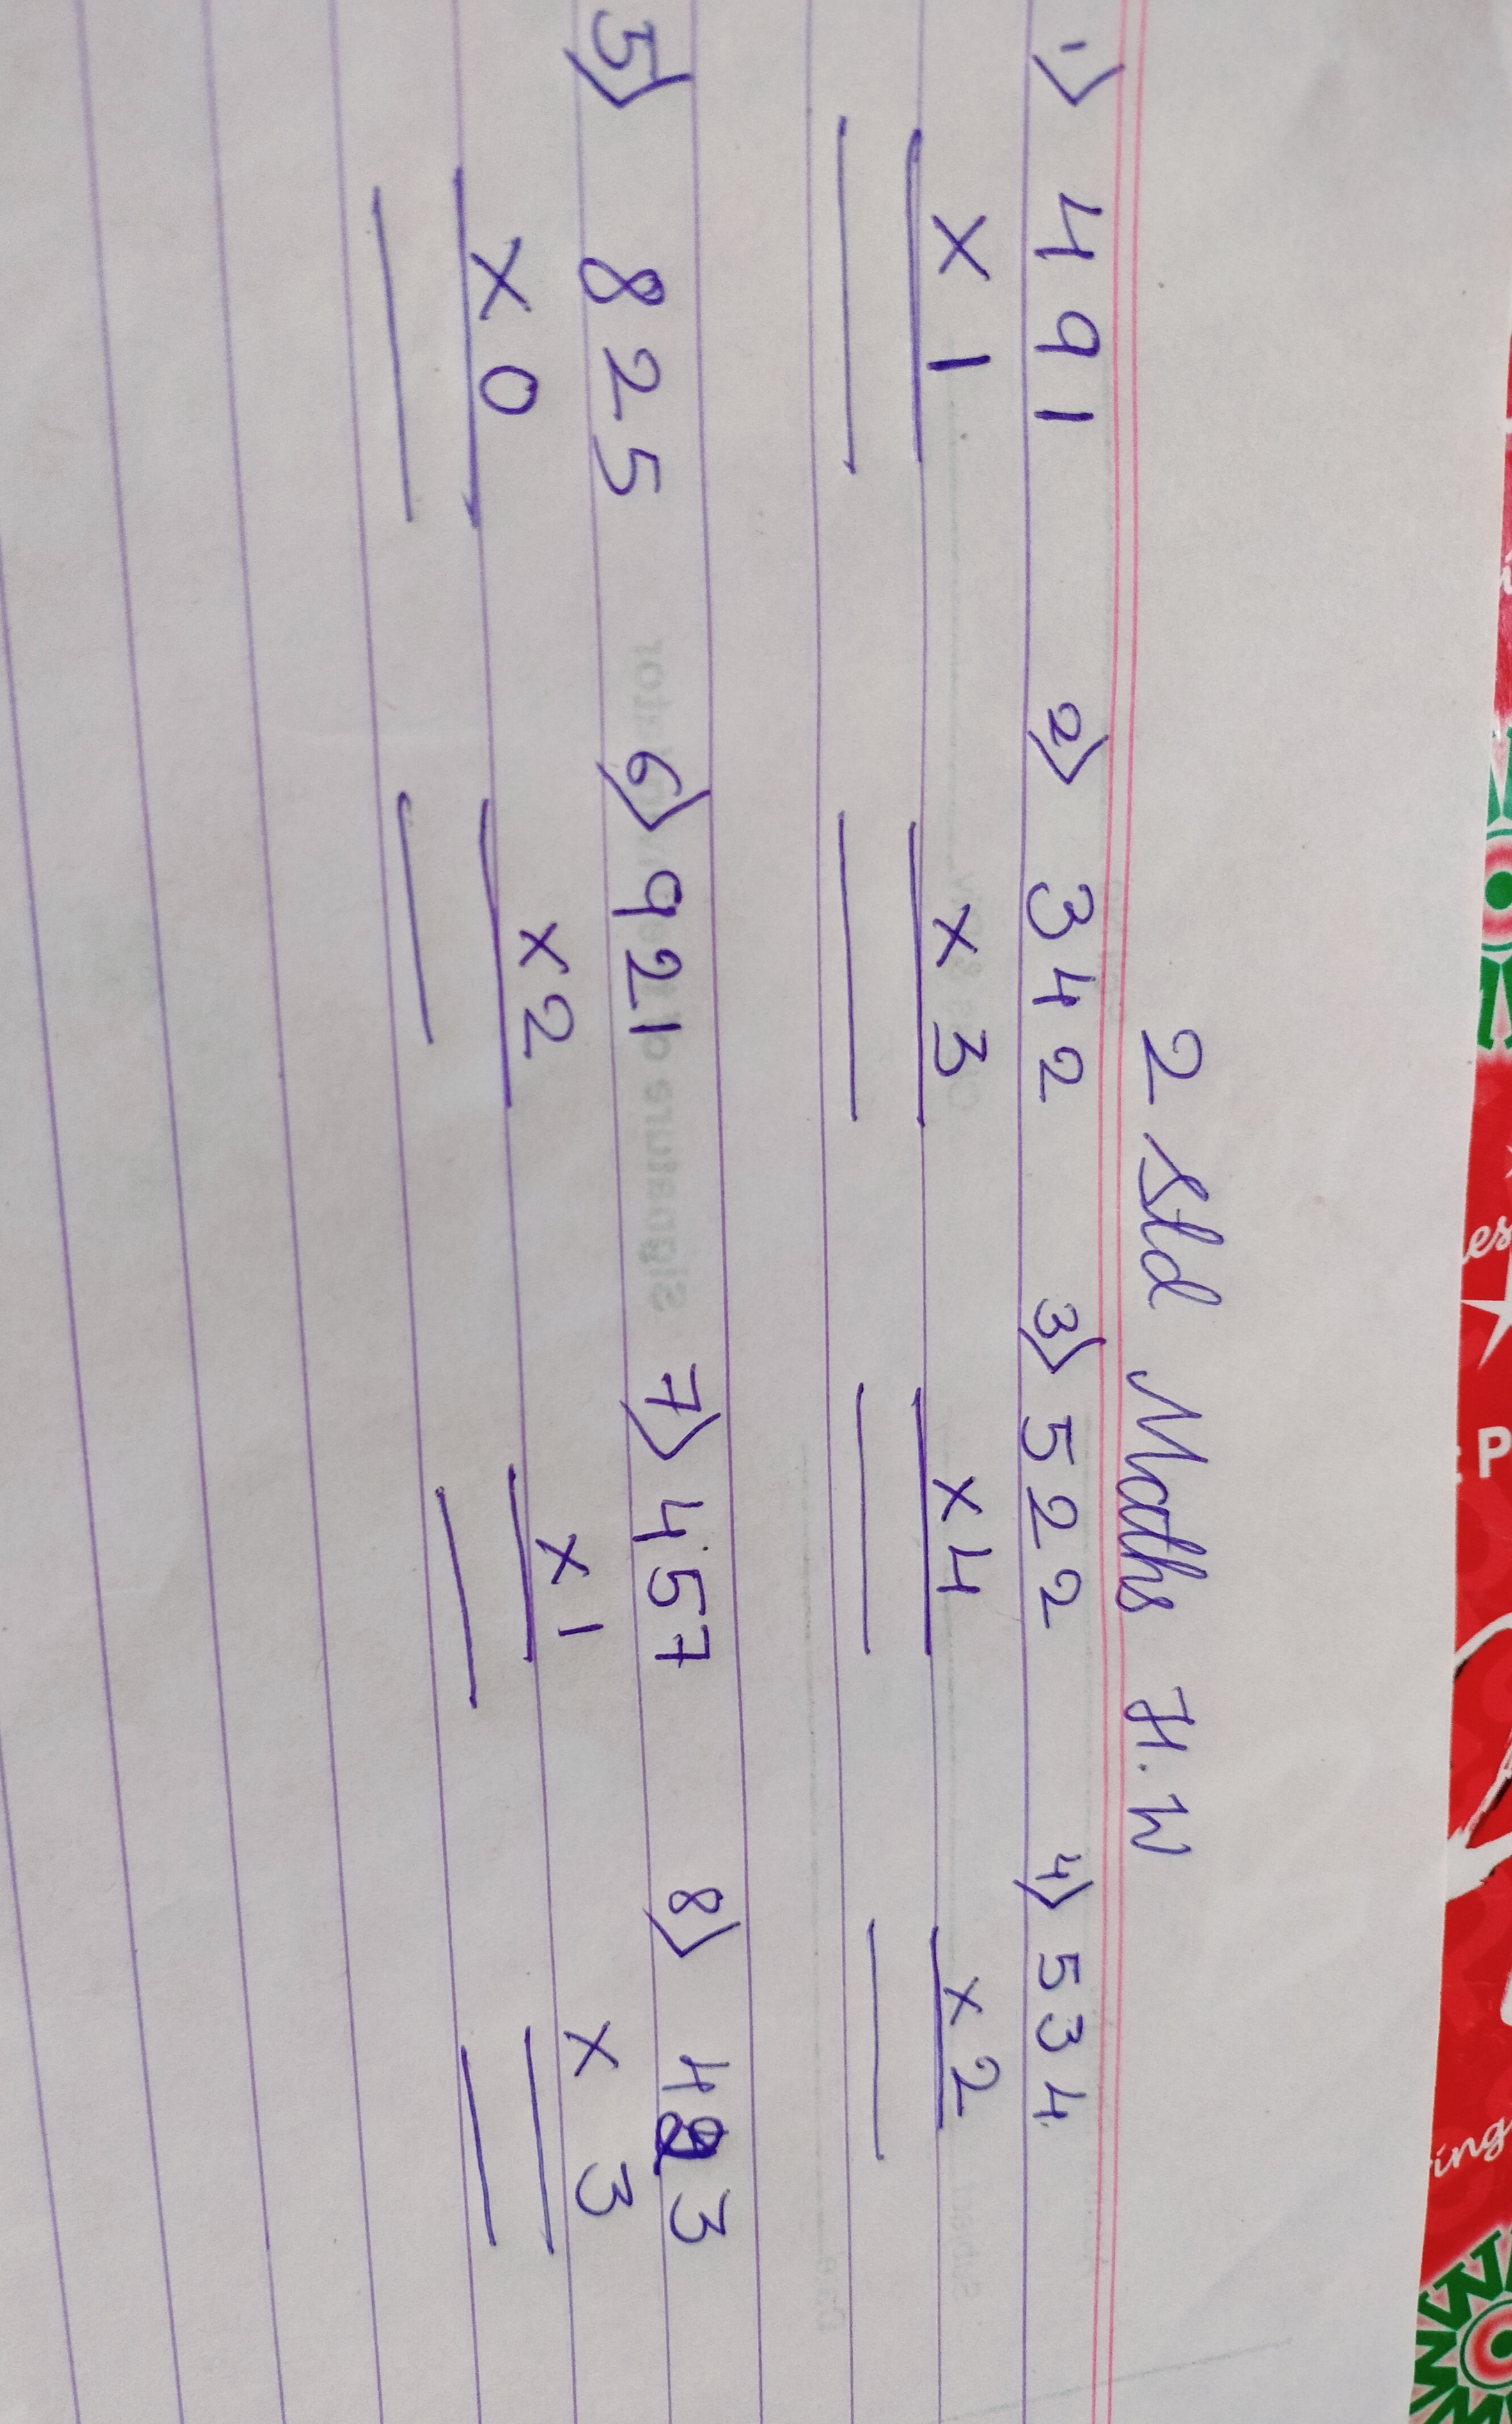 2 Std Maths H.W
1) 491 2) 342 3) 522 4) 534
x 1 x 3 x 4 x 2
5) 825 6) 921 7) 457 8) 423
x 0 x 2 x 1 x 3